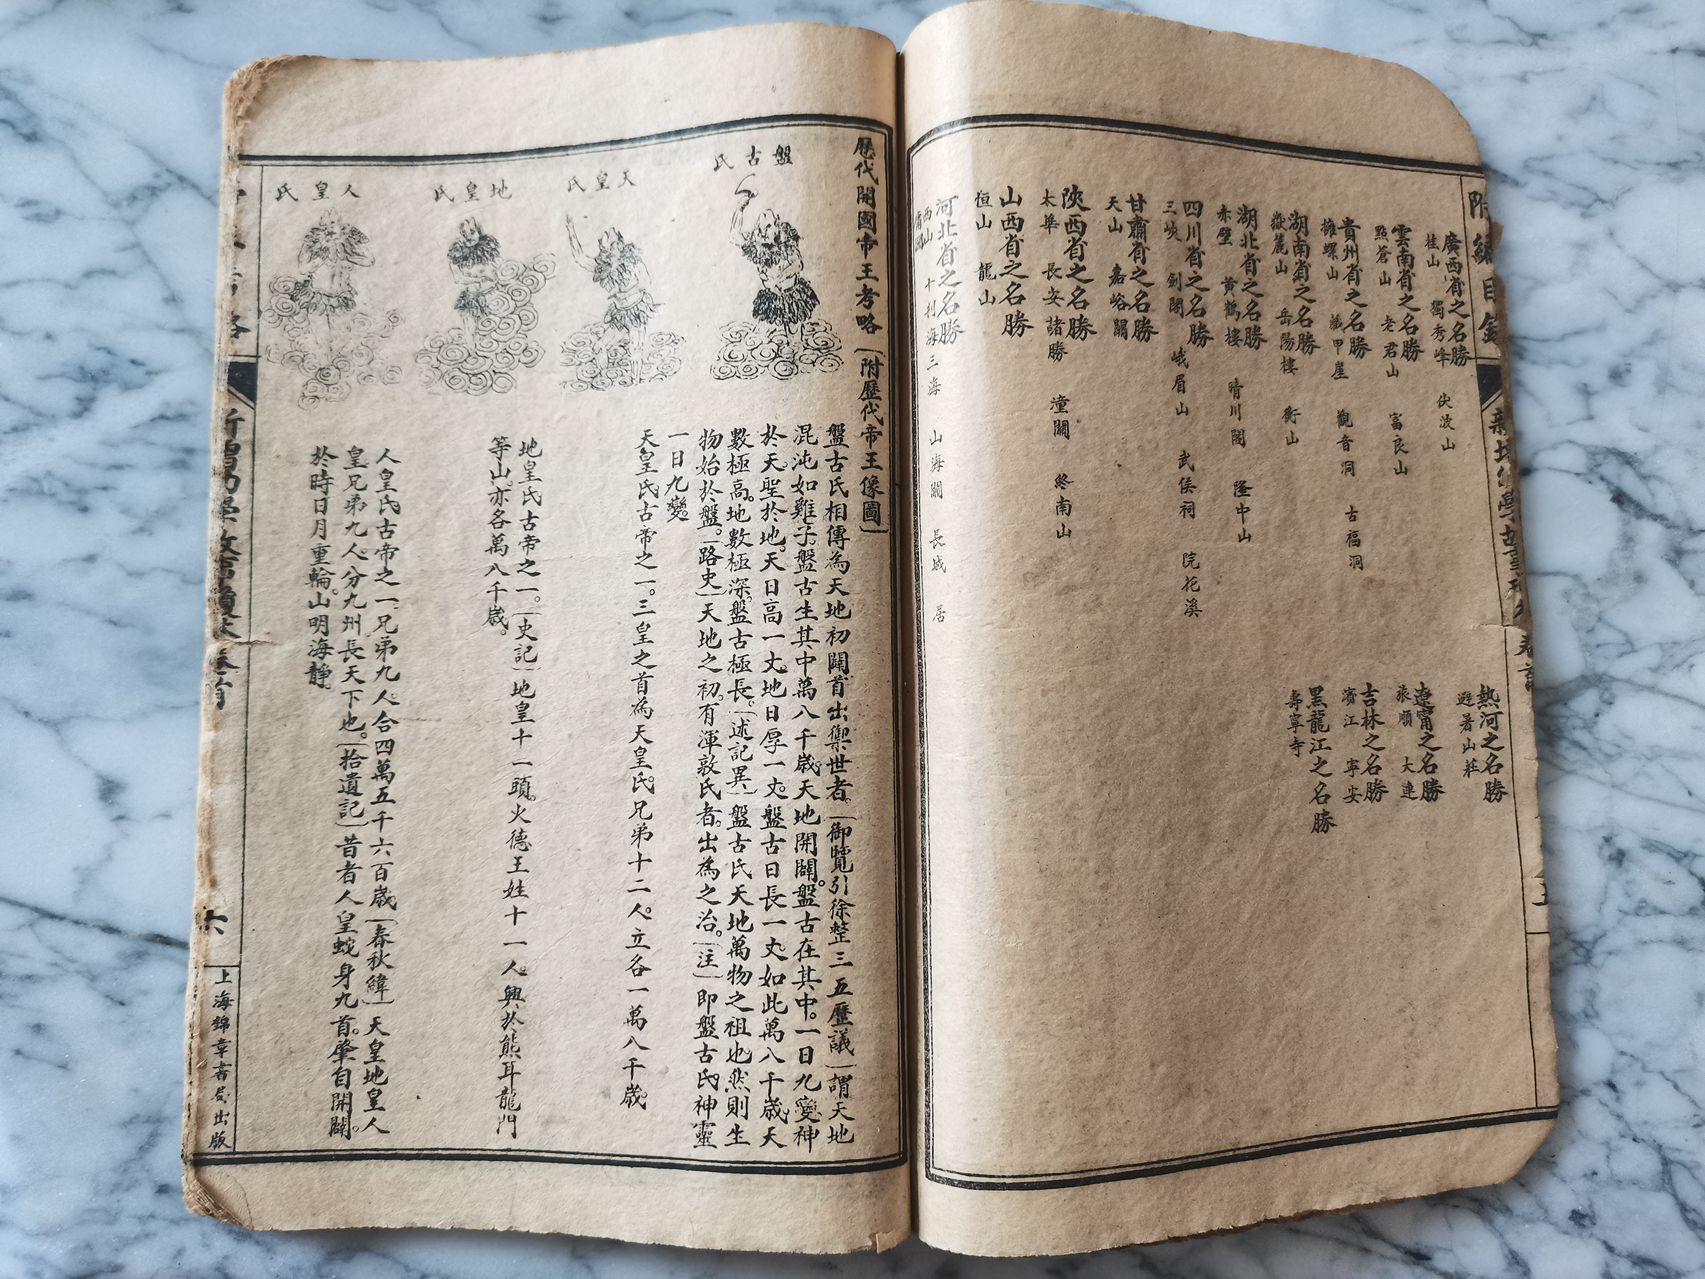 附編目錄
廣西省之名勝
桂山 獨秀峰 伏波山
雲南省之名勝
點蒼山 老君山 富良山
貴州省之名勝
螺山 甲崖 觀音洞 古福洞
湖南省之名勝
嶽麓山 岳陽樓 衡山
湖北省之名勝
赤壁 黃鶴樓 晴川閣 隆中山
四川省之名勝
三峽 劍閣 峨眉山 武侯祠 浣花溪
甘肅省之名勝
天山 嘉峪關
陝西省之名勝
太華 長安諸勝 潼關 終南山
山西省之名勝
恒山 龍山
河北省之名勝
西山 十刹海三海 山海關 長城 居
熱河之名勝
避暑山莊
遼甯之名勝
旅順 大連
吉林之名勝
濱江 寧安
黑龍江之名勝
壽寧寺
歷代開國帝王考略(附歷代帝王像圖)
盤古氏
天皇氏
地皇氏
人皇氏
盤古氏相傳為天地初闢首出禦世者。(御覽引徐整三五歷議)謂天地
混沌如雞子盤古生其中萬八千歲天地開闢。盤古在其中。一日九變神
於天。聖於地。天日高一丈。地日厚一丈。盤古日長一丈。如此萬八千歲。天
數極高。地數極深。盤古極長。(述記異)盤古氏天地萬物之祖也然則生
物始於盤。(路史)天地之初。有渾敦氏者。出為之治。(注)即盤古氏。神靈
一日九變。
天皇氏古帝之一。三皇之首為天皇氏。兄弟十二人。立各一萬八千歲。
地皇氏古帝之一。(史記)地皇十一頭。火德王姓十一人。興於熊耳龍門
等山。亦各萬八千歲。
人皇氏古帝之一。兄弟九人。合四萬五千六百歲(春秋緯)天皇地皇人
皇兄弟九人。分九州長天下也。(拾遺記)昔者人皇蛇身九首。肇自開闢。
於時日月重輪。山明海靜。
六
上海錦章書局出版